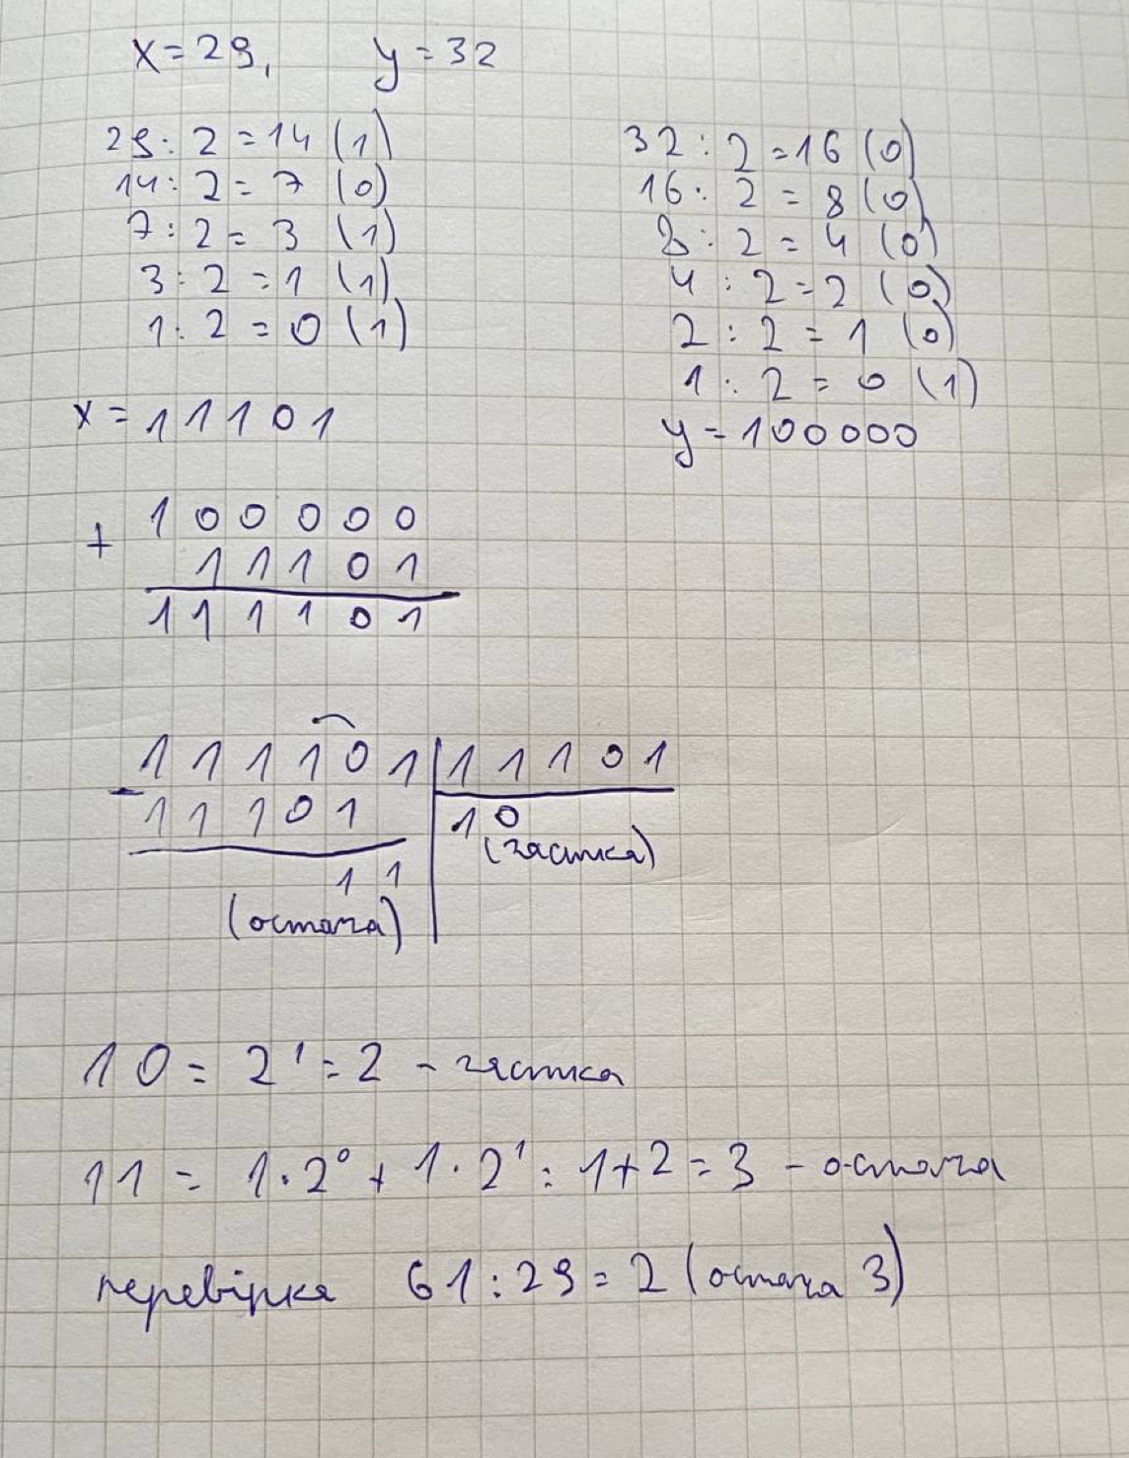 x = 29, y = 32
29 : 2 = 14 (1)
14 : 2 = 7 (0)
7 : 2 = 3 (1)
3 : 2 = 1 (1)
1 : 2 = 0 (1)
x = 11101
32 : 2 = 16 (0)
16 : 2 = 8 (0)
8 : 2 = 4 (0)
4 : 2 = 2 (0)
2 : 2 = 1 (0)
1 : 2 = 0 (1)
y = 100000
+ 100000
11101
111101
- 111101 | 11101
11101 | 10
(частка)
11
(остача)
10 = 2¹ = 2 - частка
11 = 1 · 2⁰ + 1 · 2¹ = 1 + 2 = 3 - остача
перевірка 61 : 29 = 2 (остача 3)